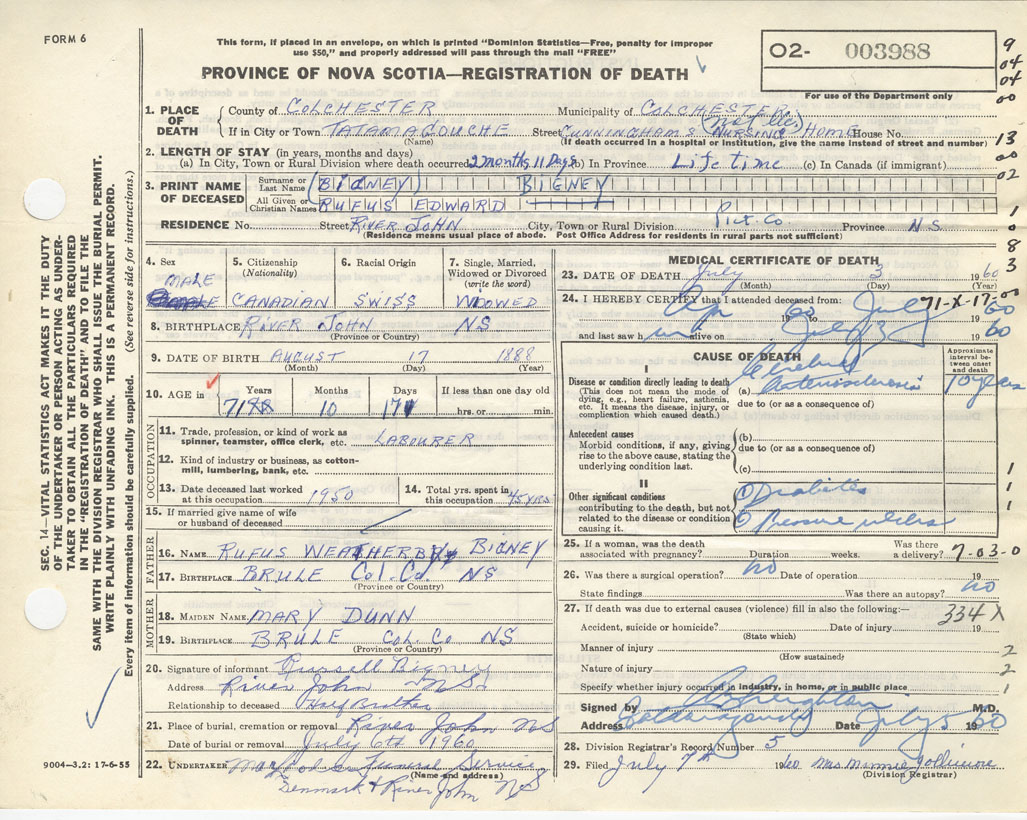 FORM 6
This form, if placed in an envelope, on which is printed "Dominion Statistics—Free, penalty for improper
use $50," and properly addressed will pass through the mail "FREE"
PROVINCE OF NOVA SCOTIA—REGISTRATION OF DEATH
02- 003988
For use of the Department only
9
04
04
00
13
00
02
1
0
8
3
1. PLACE OF DEATH
County of COLCHESTER Municipality of COLCHESTER
If in City or Town TATAMAGOUCHE Street CUNNINGHAM'S NURSING HOME House No.
(Name) (If death occurred in a hospital or institution, give the name instead of street and number)
2. LENGTH OF STAY (in years, months and days)
(a) In City, Town or Rural Division where death occurred 2 months 11 Days (b) In Province Life time (c) In Canada (if immigrant)
3. PRINT NAME OF DECEASED
Surname or Last Name BIGNEY BIGNEY
All Given or Christian Names RUFUS EDWARD
RESIDENCE No. Street RIVER JOHN City, Town or Rural Division Pict. Co Province N S
(Residence means usual place of abode. Post Office Address for residents in rural parts not sufficient)
4. Sex MALE
5. Citizenship (Nationality) CANADIAN
6. Racial Origin SWISS
7. Single, Married, Widowed or Divorced (write the word) WIDOWED
8. BIRTHPLACE RIVER JOHN NS
(Province or Country)
9. DATE OF BIRTH AUGUST 17 1888
(Month) (Day) (Year)
10. AGE in Years Months Days If less than one day old
71 10 17 hrs. or min.
OCCUPATION
11. Trade, profession, or kind of work as spinner, teamster, office clerk, etc. LABOURER
12. Kind of industry or business, as cotton-mill, lumbering, bank, etc.
13. Date deceased last worked at this occupation 1950
14. Total yrs. spent in this occupation 45 YRS
15. If married give name of wife or husband of deceased
FATHER
16. NAME RUFUS WEATHERBY BIGNEY
17. BIRTHPLACE BRULE Col. Co. NS
(Province or Country)
MOTHER
18. MAIDEN NAME MARY DUNN
19. BIRTHPLACE BRULE Col. Co NS
(Province or Country)
20. Signature of informant Russell Bigney
Address River John NS
Relationship to deceased Half Brother
21. Place of burial, cremation or removal River John NS
Date of burial or removal July 6th 1960
22. UNDERTAKER Funeral Service
(Name and address)
Denmark & River John NS
MEDICAL CERTIFICATE OF DEATH
23. DATE OF DEATH July 3 1960
(Month) (Day) (Year)
24. I HEREBY CERTIFY that I attended deceased from:
71-X-17-00
Ap 1960 to July 60
and last saw h im alive on July 3 60
CAUSE OF DEATH
Approximate interval between onset and death
I
Disease or condition directly leading to death
(This does not mean the mode of dying, e.g., heart failure, asthenia, etc. It means the disease, injury, or complication which caused death.)
(a) Cerebral Arteriosclerosis 10 years
due to (or as a consequence of)
Antecedent causes
Morbid conditions, if any, giving rise to the above cause, stating the underlying condition last.
(b)
due to (or as a consequence of)
(c)
II
Other significant conditions
contributing to the death, but not related to the disease or condition causing it.
Diabetes
Pressure ulcers
1
1
1
25. If a woman, was the death associated with pregnancy? Duration weeks. Was there a delivery? 7-03-0
26. Was there a surgical operation? no Date of operation 19
State findings Was there an autopsy? no
27. If death was due to external causes (violence) fill in also the following:—
334X
Accident, suicide or homicide? Date of injury 19
(State which)
Manner of injury 2
(How sustained)
Nature of injury 2
Specify whether injury occurred in industry, in home, or in public place 1
Signed by Creighton M.D.
Address Tatamagouche Date July 5 1960
28. Division Registrar's Record Number 5
29. Filed July 7th 1960 Mrs Minnie
(Division Registrar)
SEC. 14—VITAL STATISTICS ACT MAKES IT THE DUTY
OF THE UNDERTAKER OR PERSON ACTING AS UNDER-
TAKER TO OBTAIN ALL THE PARTICULARS REQUIRED
IN THE "REGISTRATION OF DEATH" AND TO FILE THE
SAME WITH THE DIVISION REGISTRAR WHO SHALL ISSUE THE BURIAL PERMIT.
WRITE PLAINLY WITH UNFADING INK. THIS IS A PERMANENT RECORD.
Every item of information should be carefully supplied. (See reverse side for instructions.)
9004—3.2: 17-6-55